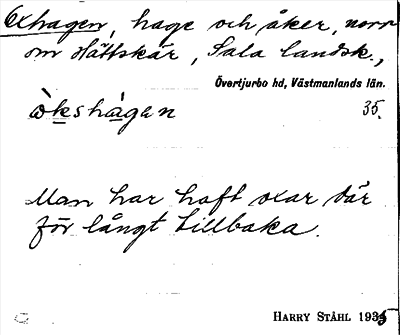 Oxhagen, hage och åker, norr
om Hättskär, Sala landsk.,
Övertjurbo hd, Västmanlands län.
òkshàgan 35.
Man har haft oxar där
för långt tillbaka.
HARRY STÅHL 1935